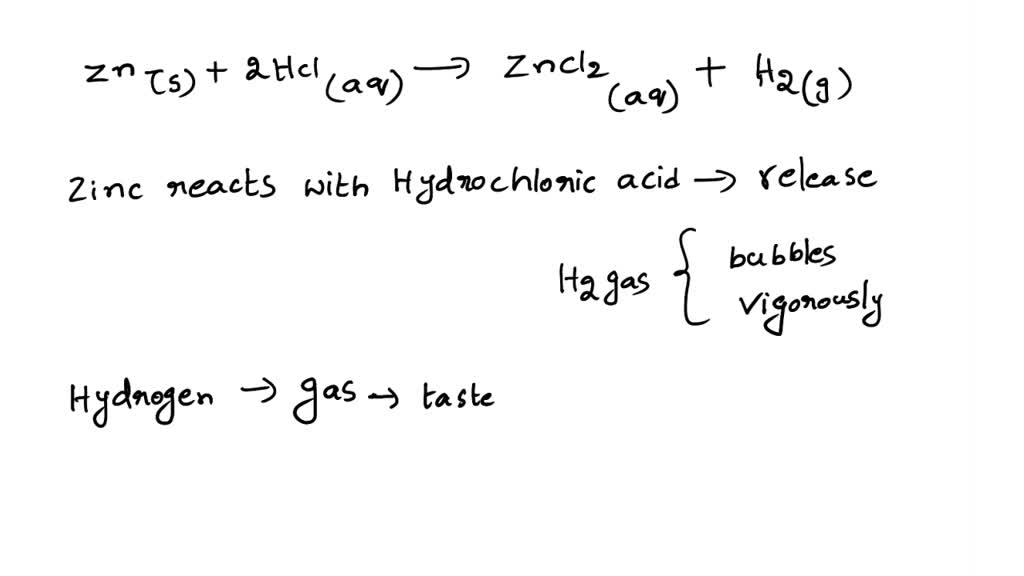 Zn (s) + 2Hcl (aq) → Zncl2 (aq) + H2(g)
Zinc reacts with Hydrochloric acid → release
H2 gas { bubbles
vigorously
Hydrogen → gas → taste